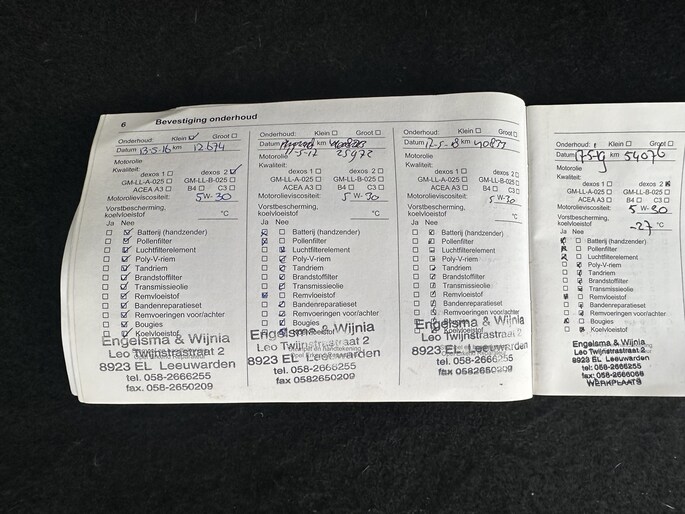 6 Bevestiging onderhoud
Onderhoud: Klein Groot
Datum 13-5-16 km 12674
Motorolie
Kwaliteit:
dexos 1 dexos 2
GM-LL-A-025 GM-LL-B-025
ACEA A3 B4 C3
Motorolieviscositeit: 5W-30
Vorstbescherming,
koelvloeistof °C
Ja Nee
Batterij (handzender)
Pollenfilter
Luchtfilterelement
Poly-V-riem
Tandriem
Brandstoffilter
Transmissieolie
Remvloeistof
Bandenreparatieset
Remvoeringen voor/achter
Bougies
Koelvloeistof
Engelsma & Wijnia
Leo Twijnstrastraat 2
8923 EL Leeuwarden
tel. 058-2666255
fax. 058-2650209
Onderhoud: Klein Groot
Datum km
11-5-17 25972
Motorolie
Kwaliteit:
dexos 1 dexos 2
GM-LL-A-025 GM-LL-B-025
ACEA A3 B4 C3
Motorolieviscositeit:
5W-30
Vorstbescherming,
koelvloeistof °C
Ja Nee
Batterij (handzender)
Pollenfilter
Luchtfilterelement
Poly-V-riem
Tandriem
Brandstoffilter
Transmissieolie
Remvloeistof
Bandenreparatieset
Remvoeringen voor/achter
Bougies
Engelsma & Wijnia
Leo Twijnstrastraat 2
8923 EL Leeuwarden
tel. 058-2666255
fax 058-2650209
Onderhoud: Klein Groot
Datum km
Motorolie
Kwaliteit:
dexos 1 dexos 2
GM-LL-A-025 GM-LL-B-025
ACEA A3 B4 C3
Motorolieviscositeit:
5W-30
Vorstbescherming,
koelvloeistof °C
Ja Nee
Batterij (handzender)
Pollenfilter
Luchtfilterelement
Poly-V-riem
Tandriem
Brandstoffilter
Transmissieolie
Remvloeistof
Bandenreparatieset
Remvoeringen voor/achter
Bougies
Engelsma & Wijnia
Leo Twijnstrastraat 2
8923 EL Leeuwarden
tel. 058-2666255
fax 0582650209
Onderhoud: Klein Groot
Datum 17-5-19 km 54076
Motorolie
Kwaliteit:
dexos 1 dexos 2
GM-LL-A-025 GM-LL-B-025
ACEA A3 B4 C3
Motorolieviscositeit:
5W-30
Vorstbescherming,
koelvloeistof -27 °C
Ja Nee
Batterij (handzender)
Pollenfilter
Luchtfilterelement
Poly-V-riem
Tandriem
Brandstoffilter
Transmissieolie
Remvloeistof
Bandenreparatieset
Remvoeringen voor/achter
Bougies
Koelvloeistof
Engelsma & Wijnia
Leo Twijnstrastraat 2
8923 EL Leeuwarden
tel: 058-2666255
WERKPLAATS